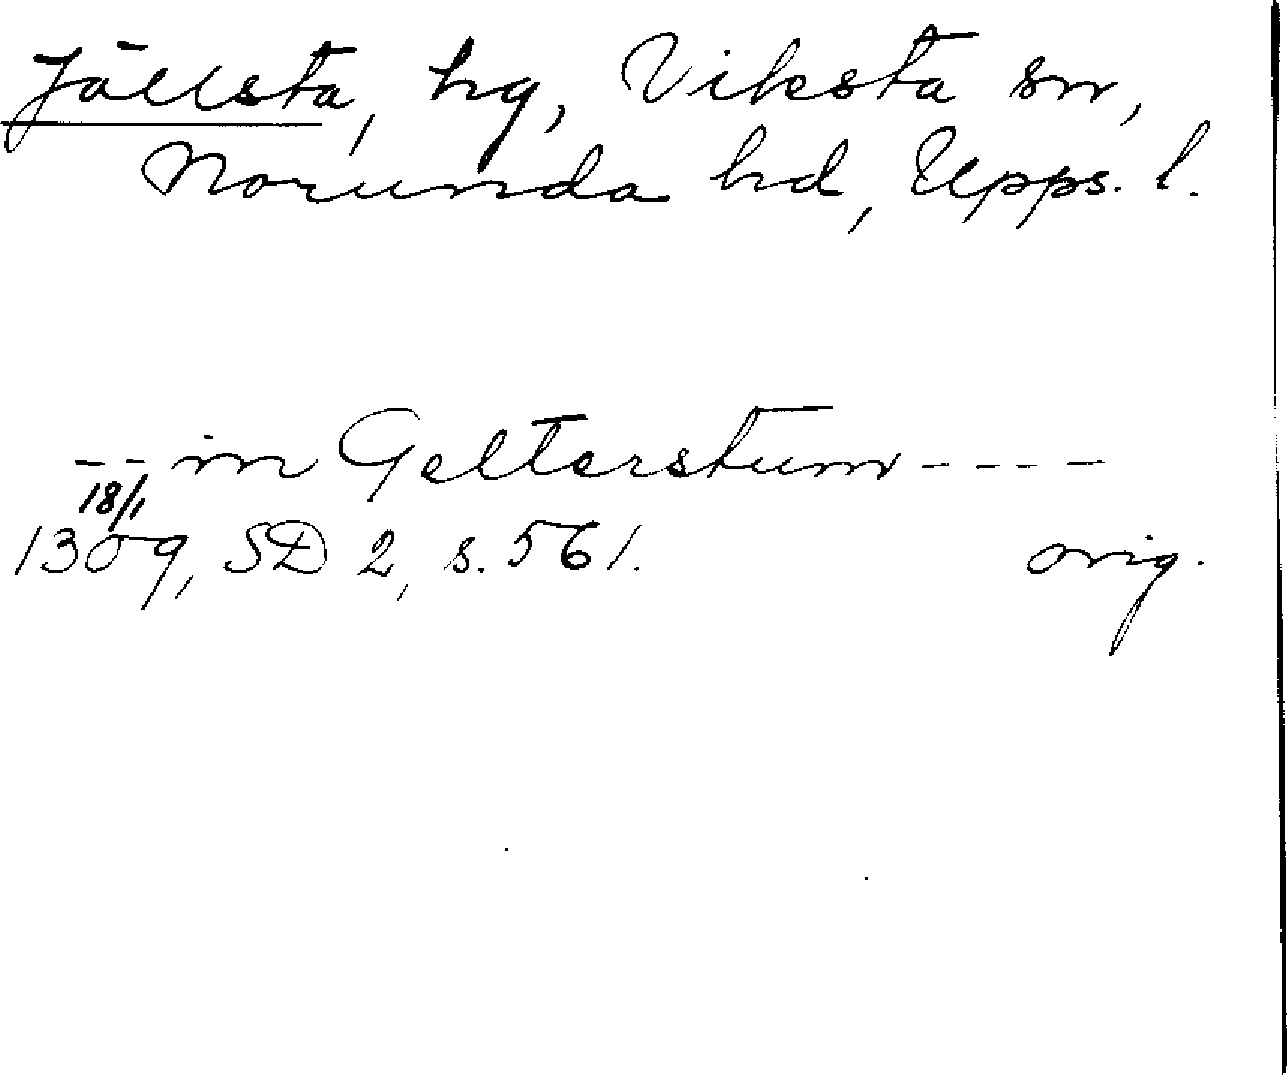 Jällsta, hg, Viksta sn,
Norunda hd, Upps. l.
-- in Gelterstum ----
18/1
1309, SD 2, s. 561. orig.